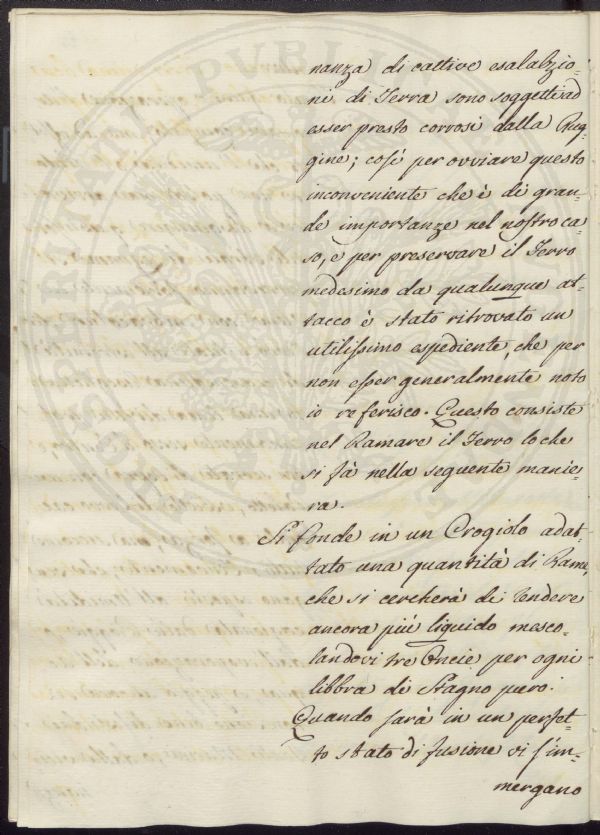 nanza di cattive esalabzio-
ni di Terra sono soggetti ad
esser presto corrosi dalla Rug-
gine; così per ovviare questo
inconveniente che è di gran-
de importanze nel nostro ca-
so, e per preservare il Ferro
medesimo da qualunque at-
tacco è stato ritrovato un
utilissimo espediente, che per
non esser generalmente noto
io referisco. Questo consiste
nel Ramare il Ferro lo che
si fà nella seguente manie-
ra.
Si fonde in un Crogiolo adat-
tato una quantità di Rame,
che si cercherà di rendere
ancora più liquido mesco-
landovi tre Oncie per ogni
libbra di Stagno puro.
Quando sarà in un perfet-
to stato di fusione vi s'im-
mergano